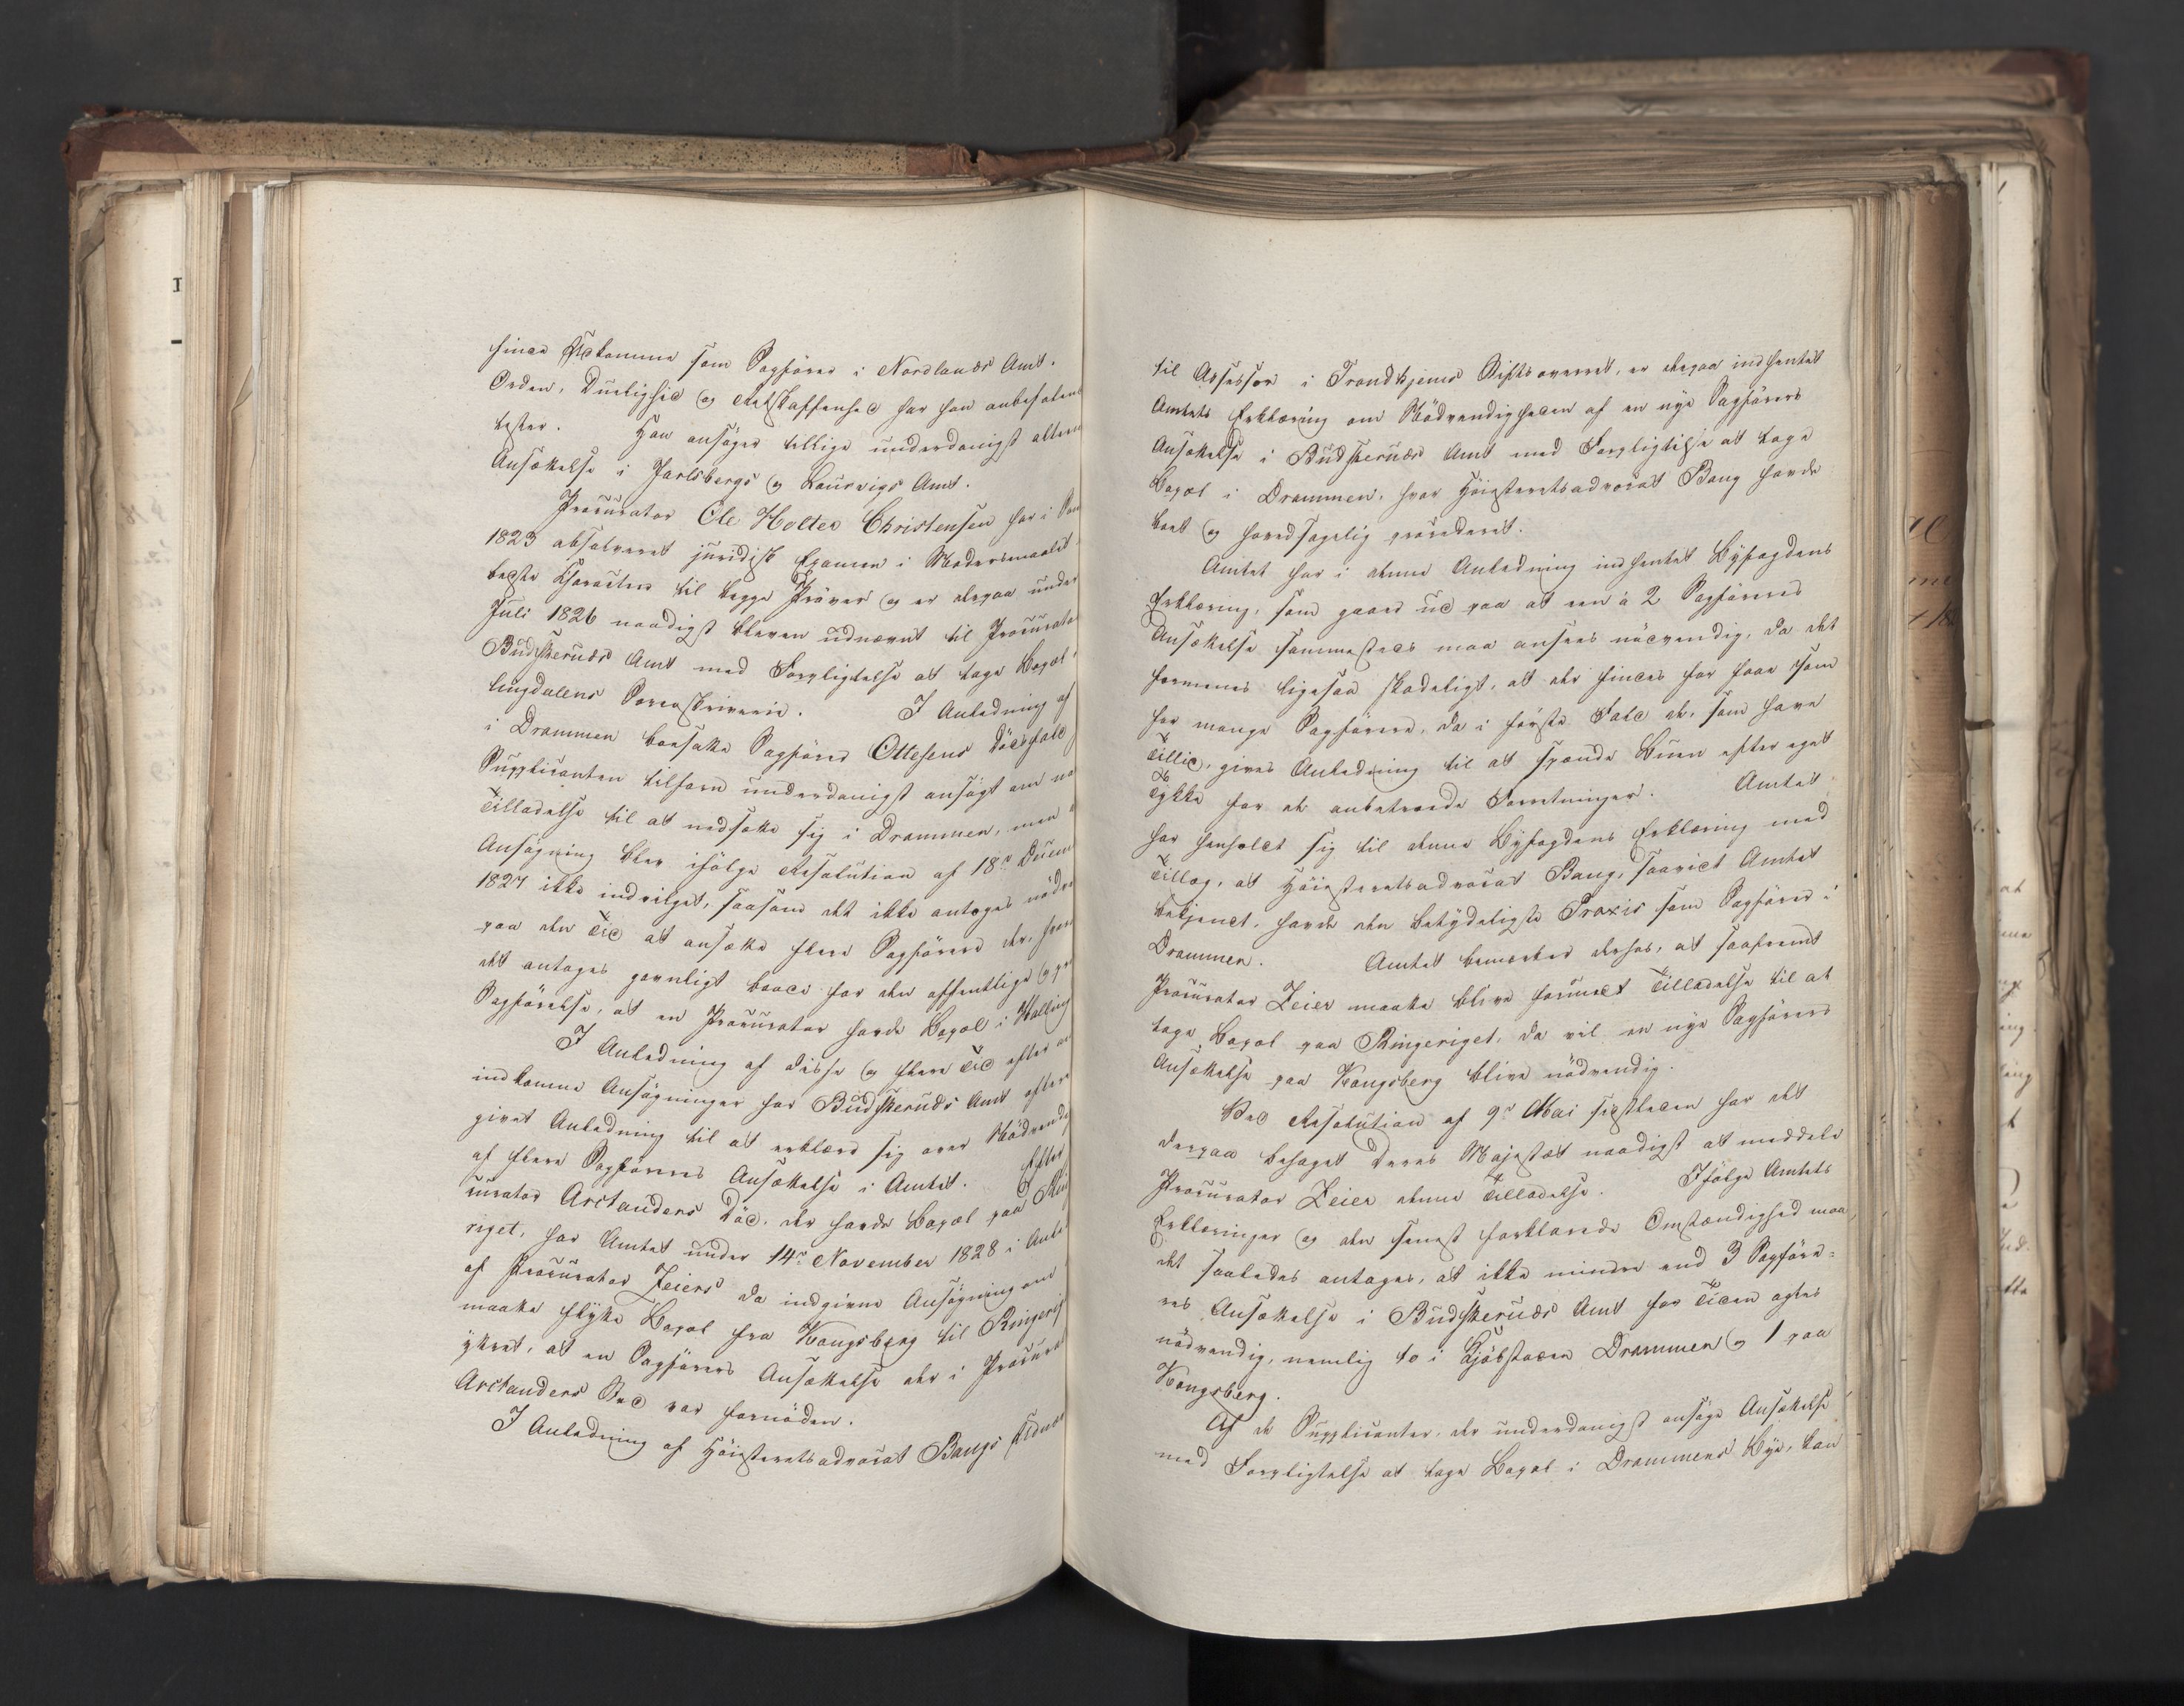 finde Udkomme som Sagfører i Nordlands Amt.
Orden, Duelighed og Retskaffenhed har han anbefalende
tester. Han ansøger tillige underdanigst altern
Ansættelse i Jarlsbergs og Laurvigs Amt.
Procurator Ole Holter Christensen har i
1823 absolveret juridisk Examen i Modersmaalet
bedste Character til begge Prøver og er derpaa under
Juli 1826 naadigst bleven udnævnt til Procurator
Budskeruds Amt med Forpligtelse at tage Bopæl
lingdalens Sorenskriverie. I Anledning af
i Drammen bosatte Sagfører Ottesens Dödsfald
Supplicanten tilforn underdanigst ansögt om na
Tilladelse til at nedsætte sig i Drammen, men
Ansøgning blev ifölge Resolution af 18de Decem
1827 ikke indvilget, saasom det ikke antoges nödv
paa den Tid at ansætte flere Sagförere der, hvor
det antoges gavnligt baade for den offentlige og pr
Sagförelse, at en Procurator havde Bopæl i Halling
I Anledning af disse og flere Tid efter
indkomne Ansögninger har Budskeruds Amt efter
givet Anledning til at erklære sig over Nödvendig
af flere Sagföreres Ansættelse i Amtet. Efter
curator Arctanders Död, der havde Bopæl paa Rin
riget, har Amtet under 14de November 1828 i Anle
af Procurator Zeiers da indgivne Ansögning om
maatte flytte Bopæl fra Kongsberg til Ringerig
yttret, at en Sagförers Ansættelse der i Procura
Arctanders Sted var fornöden.
I Anledning af Höiesteretsadvocat Bangs Udnæ
til Assessor i Trondhjems Stiftsoverret, er derpaa indhentet
Amtets Erklæring om Nödvendigheden af en nye Sagförers
Ansættelse i Budskeruds Amt med Forpligtelse at tage
Bopæl i Drammen, hvor Höiesteretsadvocat Bang havde
boet og hovedsagelig procederet.
Amtet har i denne Anledning indhentet Byfogdens
Erklæring, som gaaer ud paa at een à 2 Sagföreres
Ansættelse sammesteds maa ansees nödvendig, da det
formenes ligesaa skadeligt, at der findes for faae som
for mange Sagförere, da i förste Fald de, som have
Tillid, gives Anledning til at spænde Buen efter eget
Tykke for de anbetroede Forretninger. Amtet
har henholdt sig til denne Byfogdens Erklæring med
Tillæg, at Höiesteretsadvocat Bang, saavidt Amtet
bekjendt, havde den betydeligste Praxis som Sagförer i
Drammen. Amtet bemærker derhos, at saafremt
Procurator Zeier maatte blive forundt Tilladelse til at
tage Bopæl paa Ringeriget, da vil en nye Sagförers
Ansættelse paa Kongsberg blive nödvendig.
Ved Resolution af 9de Mai sidstleden har det
derpaa behaget Deres Majestæt naadigst at meddele
Procurator Zeier denne Tilladelse. Ifölge Amtets
Erklæringer og den senest forklarede Omstændighed maa
det saaledes antages, at ikke mindre end 3 Sagföre=
res Ansættelse i Budskeruds Amt for Tiden agtes
nödvendig, nemlig to i Kjöbstaden Drammen og 1 paa
Kongsberg.
Af de Supplicanter, der underdanigst ansöge Ansættelse
med Forpligtelse at tage Bopæl i Drammens Bye, kan